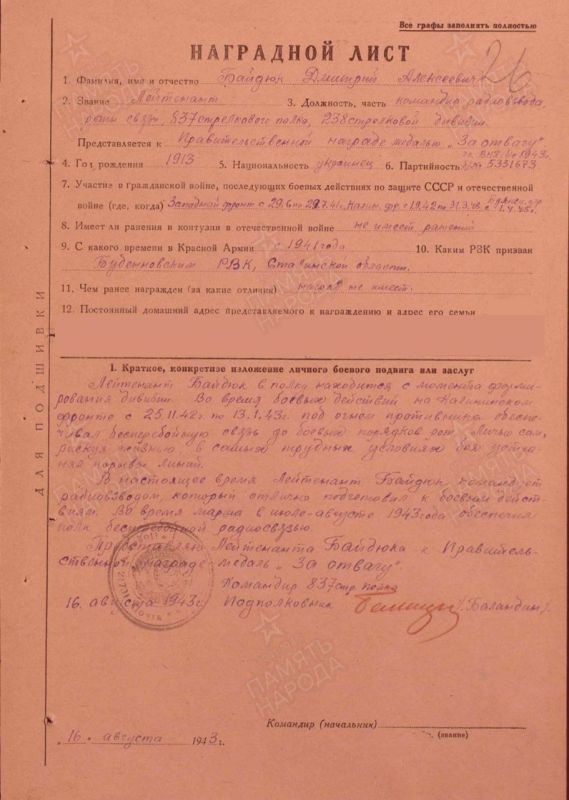 Все графы заполнять полностью
НАГРАДНОЙ ЛИСТ
26
1. Фамилия, имя и отчество Байдюк Дмитрий Алексеевич
2. Звание Лейтенант 3. Должность, часть командир радиовзвода
роты связи, 837 стрелкового полка, 238 стрелковой дивизии.
Представляется к Правительственной награде медалью „За отвагу"
4. Год рождения 1913 5. Национальность украинец 6. Партийность 5331673
7. Участие в гражданской войне, последующих боевых действиях по защите СССР и отечественной
войне (где, когда) Западной фронт с 29.6 по 29.7.41г. Калин. фр. с 1.9.42 по 31.3.43г.
8. Имеет ли ранения и контузии в отечественной войне не имеет ранений
9. С какого времени в Красной Армии с 1941 года 10. Каким РВК призван
Буденновским РВК, Сталинской области.
11. Чем ранее награжден (за какие отличия) наград не имеет.
12. Постоянный домашний адрес представляемого к награждению и адрес его семьи
ДЛЯ ПОДШИВКИ
I. Краткое, конкретное изложение личного боевого подвига или заслуг
Лейтенант Байдюк в полку находится с момента форми-
рования дивизии. Во время боевых действий на Калининском
фронте с 25.11.42г. по 13.1.43г. под огнем противника обеспе-
чивал бесперебойную связь до боевых порядков рот. Лично сам,
рискуя жизнью, в самых трудных условиях боя устра-
нял порывы линий.
В настоящее время Лейтенант Байдюк командует
радиовзводом, который отлично подготовил к боевым дейст-
виям. Во время марша в июле-августе 1943 года обеспечил
полк бесперебойной радиосвязью.
Представляю Лейтенанта Байдюка к Правитель-
ственной награде медаль „За отвагу".
Командир 837 стр. полка
16. августа 1943г. Подполковник /Баландин/.
Командир (начальник)
(звание)
„16. августа 1943г.
ПАМЯТЬ
НАРОДА